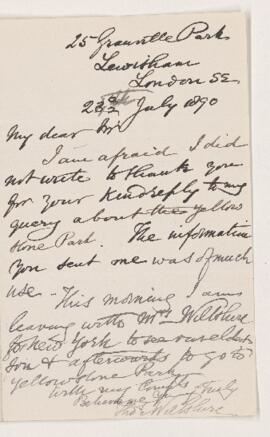 25 Granville Park
Lewisham
London SE
July 1890
My dear Sir
I am afraid I did
not write to thank you
for your kind reply to my
query about the Yellow
stone Park. The information
you sent me was of much
use. This morning I am
leaving with Mrs Wiltshire
for New York to see our eldest
son & afterwards to go to
Yellow Stone Park
with many thanks
Believe me yrs truly
Thos Wiltshire